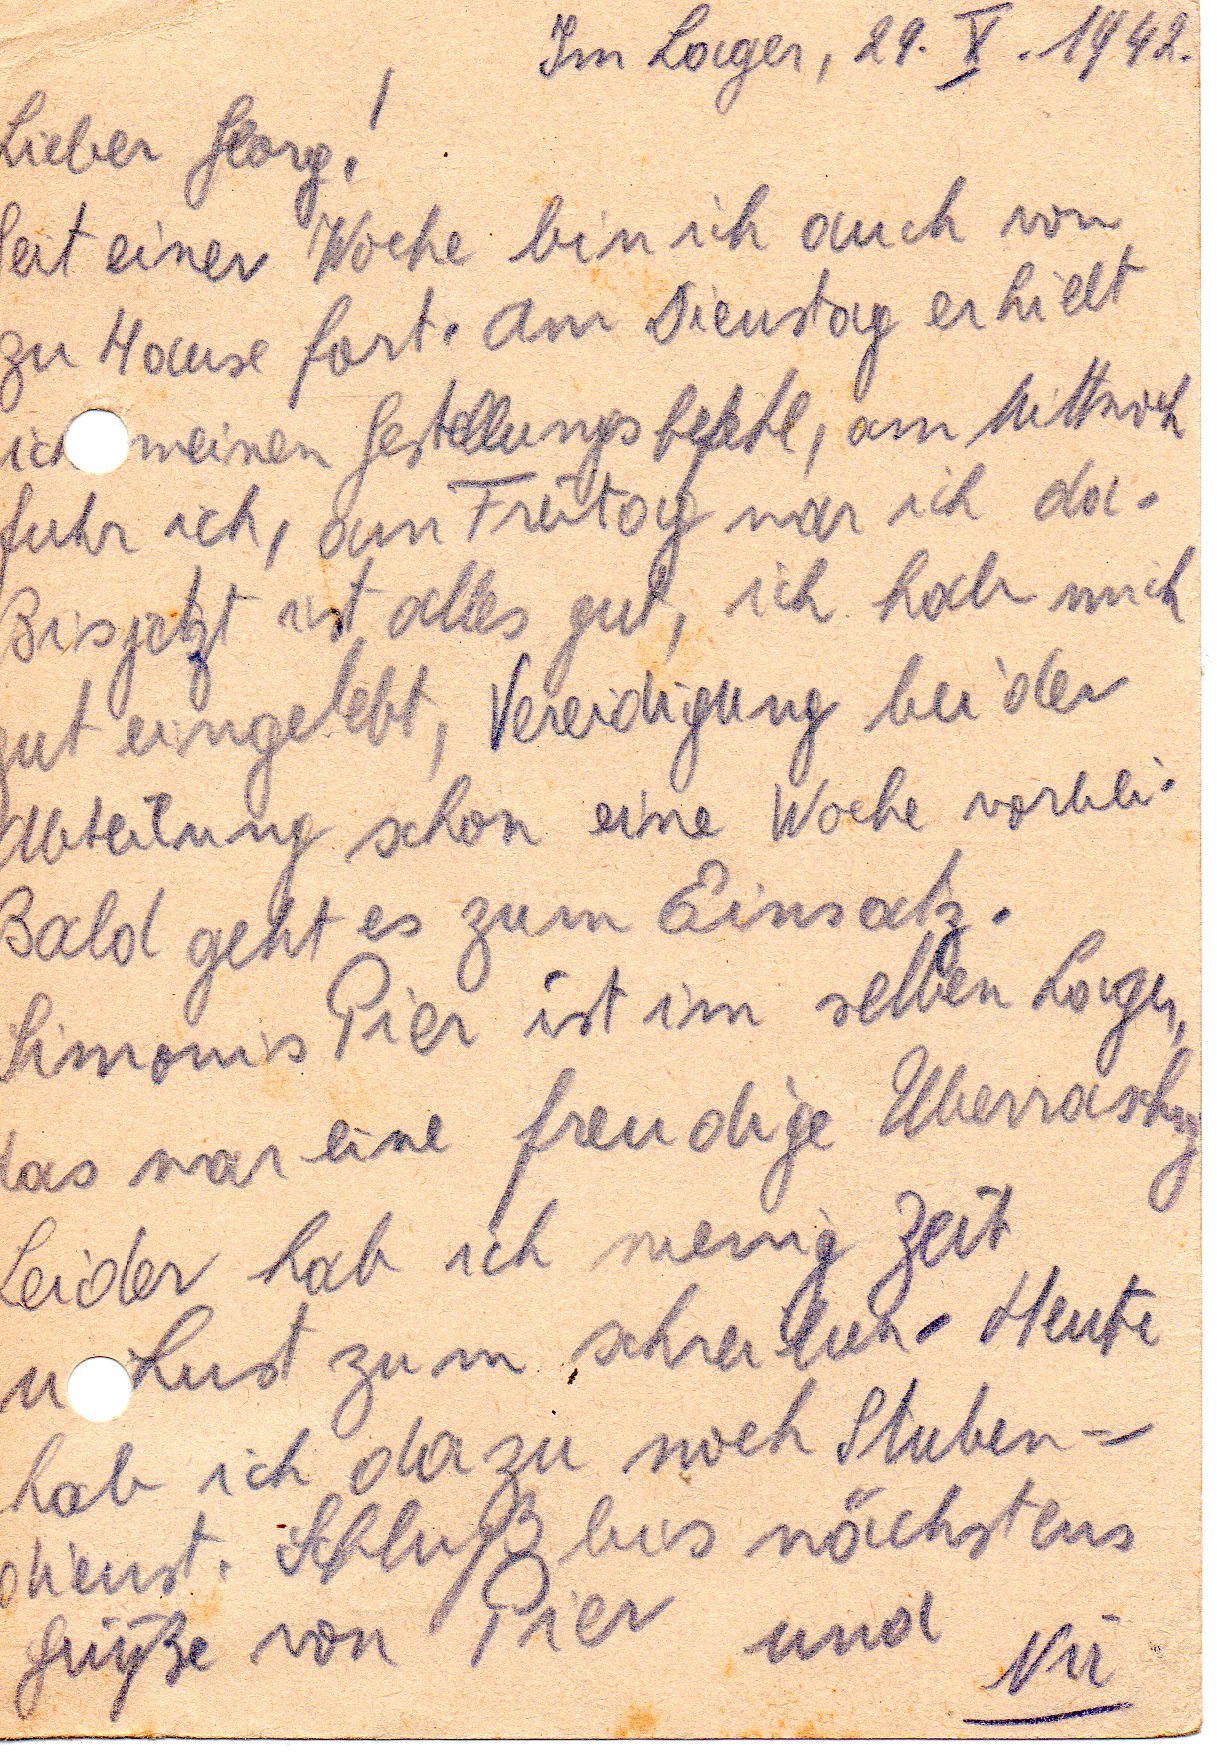 Im Lager, 29. X. 1942.
Lieber Georg!
Seit einer Woche bin ich auch von
zu Hause fort. Am Dienstag erhielt
ich meinen Gestellungsbefehl, am Mittwoch
fuhr ich, am Freitag war ich da.
Bis jetzt ist alles gut, ich hab mich
gut eingelebt, Vereidigung bei der
Abteilung schon eine Woche vorbei.
Bald geht es zum Einsatz.
Simonis Pier ist im selben Lager,
das war eine freudige Überraschung
Leider hab ich wenig Zeit
u Lust zum schreiben. Heute
hab ich dazu noch Stuben-
dienst. Schluß bis nächstens
Grüße von Pier und